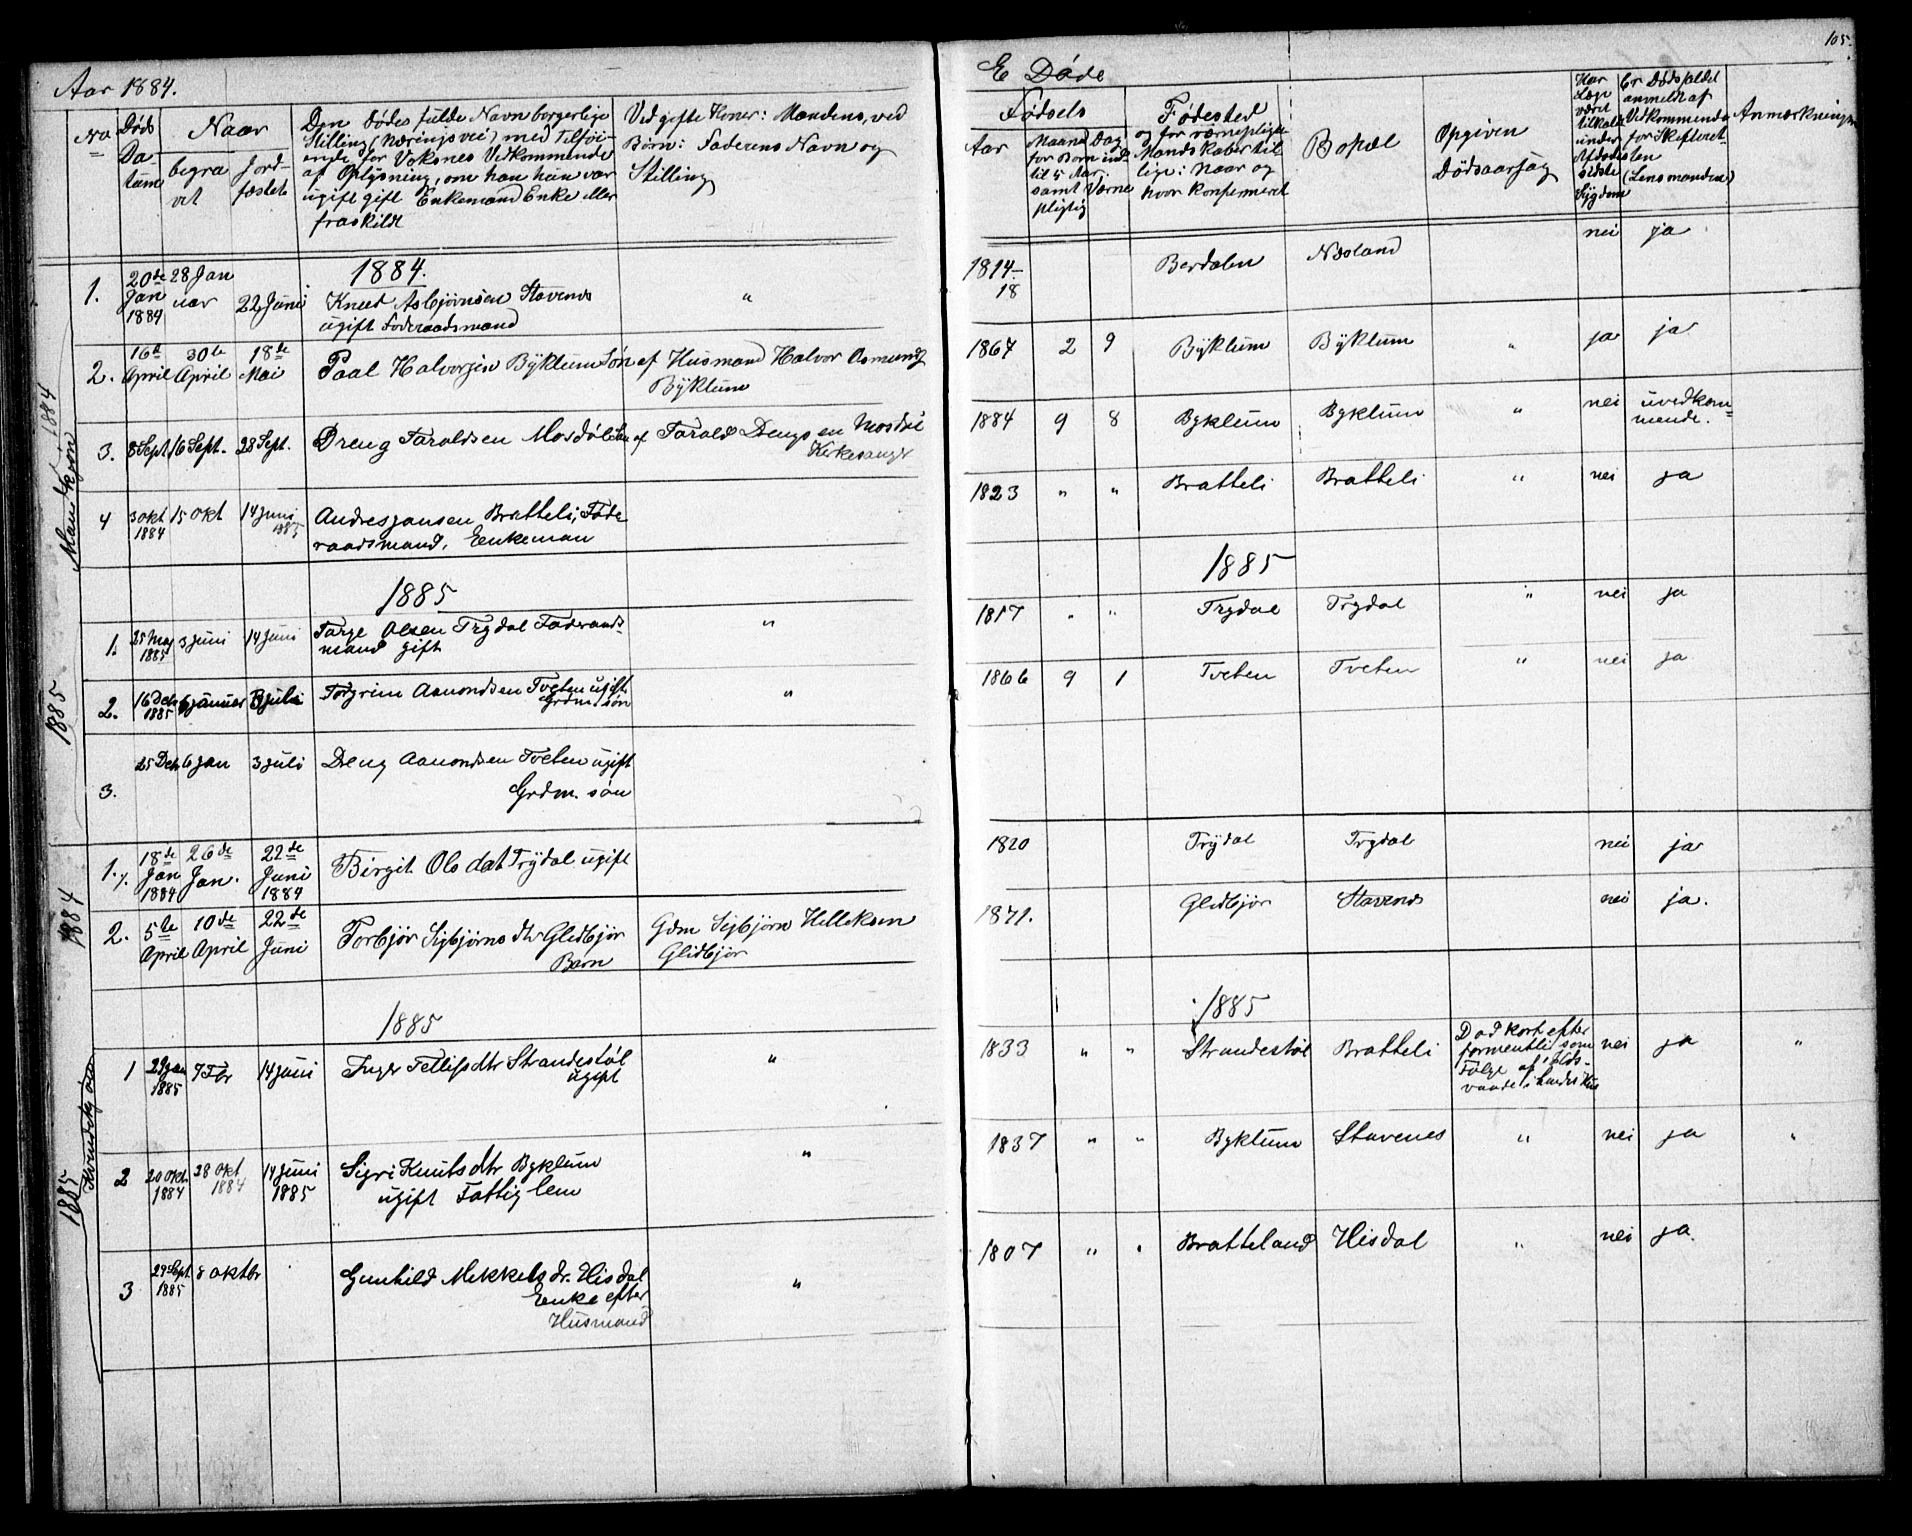 Aar 1884.
E Døde
105.
No
Døds Datum
Naar
begravet
Jordfæstet
Den Dødes fulde Navn borgerlige
Stilling (Næringsvei) med Tilføi-
ende for Voksnes Vedkommende
af Oplysning, om han hun var
ugift gift Enkemand Enke eller
fraskildt
Ved gifte Koner: Mandens, ved
Børn: Faderens Navn og
Stilling
Fødsels
Aar
Maaned Dag
for Børn ind-
til 5 Aar.
samt Værne
pligtig
Fødested
og for værnepligtige
Mandskaber til
lige: Naar og
hvor konfirmeret
Bopæl
Opgiven
Dødsaarsag
Har
Læge
været
tilkaldt
under
Afdødes
sidste
Sygdom
Er Dødsfaldet
anmeldt af
Vedkommende
for Skifteret-
ten
(Lensmanden)
Anmærkninger
Mandkjøn 1884
1884.
1. 20de Jan 1884 28 Januar 22 Juni Knud Asbjørnsen Stavenes ugift Foderaadsmand " 1814-18 Berdalen Næsland nei ja
2. 16de April 30te April 18de Mai Paal Halvorsen Byklum Søn af Husmand Halvor Asmunds Byklum 1867 2 9 Byklum Byklum " ja ja
3. 8 Sept 16 Sept. 28 Sept. Dreng Taraldsen Mosdøl Søn af Tarald Dengsen Mosdøl Kirkesanger 1884 9 8 Byklum Byklum " nei uvedkommende.
4 3 Okt 1884 15 Okt 14 juni 1885 Andres Jansen Bratteli, Føderaadsmand. Enkeman 1823 " " Bratteli Bratteli " nei ja
1885
1885 1885
1. 25 May 1885 3 juni 14 juni Targe Olsen Trydal Føderaadsmand gift " 1817 " " Trydal Trydal " nei ja
2. 16 Dek 1885 6 januar 3 juli Torgrim Aamondsen Tveten ugift Grdm. søn " 1866 9 1 Tveten Tveten " nei ja
3. 25 Dek 6 jan 3 juli Dreng Aamondsen Tveten ugift Grdm. søn
1884
1. 18de Jan 1884 26de Jan. 22de Juni 1884 Birgit Ols dat Trydal ugift 1820 Trydal Trydal nei ja
2. 5te April 10de April 22de Juni Torbjør Sigbjørns dtr Glidbjør Barn Gdm Sigbjørn Helleksen Glidbjør 1871. Glidbjør Stavenes nei ja.
1885 Kvindekjøn
1885 1885
1 29 jan 1885 7 Fbr 14 juni Inger Tellefsdtr Strandestøl ugift " 1833 " " Strandestøl Bratteli Død kort efter formentlig som Følge af Ilds-vaade i Landets Hus nei ja "
2 20 Okt. 1884 28 Okt 1884 14 juni 1885 Sigri Knuts dtr Byklum ugift Fattiglem " 1837 " " Byklum Stavenes " nei ja "
3 29 Sept 1885 8 oktbr Gunhild Mikkels dr. Hisdal Enke efter Husmand " 1807 " " Bratteland Hisdal " nei ja.